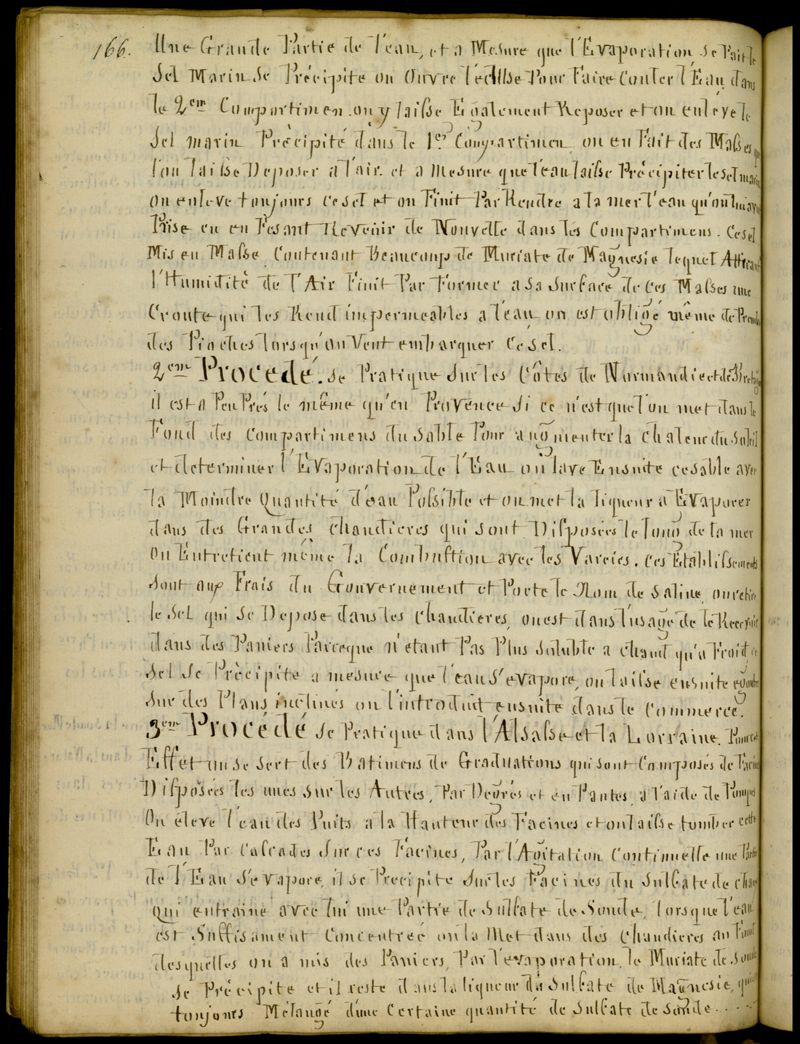 166. Une Grande Partie de l'eau, et a Mesure que l'Evaporation Se Fait le
Sel Marin Se Précipite on Ouvre l'éclūse Pour Faire Couler l'Eau dans
le 2em Compartimen. on y laisse Egalement Reposer et on enleve le
Sel marin Précipité dans le 1er Compartimen on en Fait des Masses
l'on laisse Deposer a l'air. et a Mesure que l'eau laisse Précipiter le sel marin
On enleve toujours ce sel et on Finit Par Rendre a la mer l'eau qu'on
Prise en en Fesant Revenir de Nouvelle dans les Compartimens. Ce sel
Mis en Masse Contenant Beaucoup de Muriate de Magnesie lequel Attirant
l'Humidité de l'Air Finit Par Former a Sa Surface de ces Masses une
Croute qui les Rend impermeables a l'eau on est obligé même de Prendre
des Pioches lorsqu'on Veut embarquer Ce sel.
2em Procédé. Se Pratique Sur les Côtes de Normandie et de Bretagne
il est a Peu Prés le même qu'en Provence Si ce n'est que l'on met dans le
Fond des Compartimens du Sable Pour augmenter la Chaleur du Soleil
et determiner l'Evaporation de l'Eau on lave Ensuite ce sable avec
la Moindre Quantité d'eau Possible et on met la liqueur a Evaporer
dans des Grandes Chaudieres qui sont Disposées le long de la mer
On Entretient même la Combustion avec les Varecs. Ces Etablissements
Sont aux Frais du Gouvernement et Porte le Nom de Saline, on retire
le Sel qui Se Depose dans les Chaudieres, on est dans l'usage de le Recevoir
dans des Paniers Parceque n'etant Pas Plus Soluble a chaud qu'a Froid ce
Sel Se Précipite a mesure que l'eau S'evapore, on laisse ensuite egoutter
Sur des Plans inclinés on l'introduit ensuite dans le Commerce.
3em Procédé Se Pratique dans l'Alsasse et la Lorraine. Pour cet
Effet on Se Sert des Batimens de Graduations qui sont Composés de Facines
Disposées les unes Sur les Autres, Par Degrés et en Pantes a l'aide de Pompes
On éleve l'eau des Puits a la Hauteur des Facines et on laisse tomber cette
Eau Par Cascades Sur ces Facines, Par l'Agitation Continuelle une Partie
de l'Eau S'evapore, il Se Precipite Sur les Facines du Sulfate de chaux
qui entraine avec lui une Partie de Sulfate de Soude, lorsque l'eau
est Suffisament Concentrée on la Met dans des Chaudieres au Fond
desquelles on a mis des Paniers, Par l'evaporation, le Muriate de Soude
Se Précipite et il reste dans la liqueur du Sulfate de Magnesie, qui
toujours Mélangé d'une Certaine quantité de Sulfate de Soude....